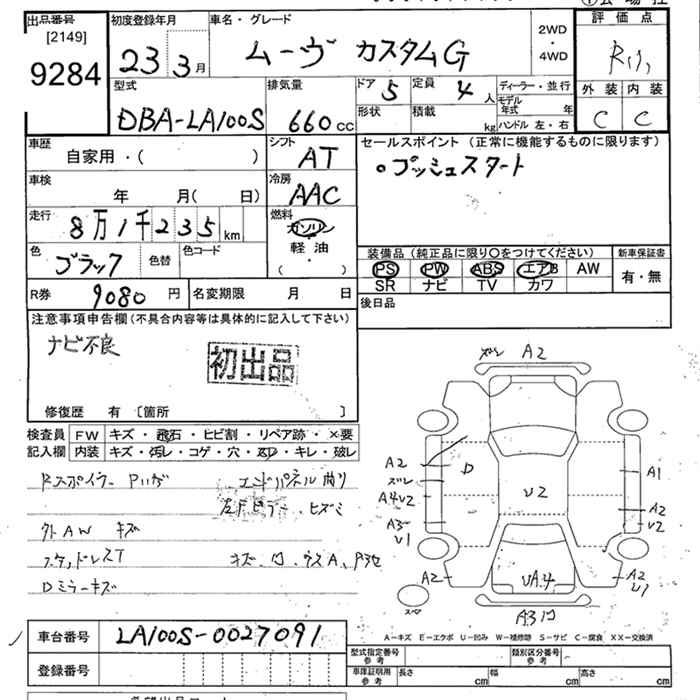 出品番号
[2149]
9284
初度登録年月
23 3月
車名・グレード
ムーヴ カスタムG
2WD
・
4WD
評価点
外装 内装
C C
型式
DBA-LA100S
排気量
660 cc
ドア 5
定員 4 人
形状
積載 kg
ディーラー・並行
モデル年式 年
ハンドル 左・右
車歴
自家用・( )
シフト
AT
セールスポイント (正常に機能するものに限ります)
○プッシュスタート
車検
年 月( 日)
冷房
AAC
走行
8万1千235 km
燃料
ガソリン
軽・油
( ・ )
色
ブラック
色替
色コード
装備品 (純正品に限り○をつけてください)
PS PW ABS エアB AW
SR ナビ TV カワ
新車保証書
有・無
R券 9080 円
名変期限 月 日
後日品
注意事項申告欄 (不具合内容等は具体的に記入して下さい)
ナビ不良
初出品
修復歴 有 〔箇所 〕
検査員
記入欄
FW キズ・飛石・ヒビ割・リペア跡・×要
内装 キズ・汚レ・コゲ・穴・ ・キレ・破レ
Rスポイラー
エンドパネル曲り
左Fピラー・ヒズミ
外AW キズ
キズ、凹、ウスA、
Dミラーキズ
ズレ A2
A2
ズレ
A4U2
A3
U1
D
U2
A1
A2
U2
A2
UA.4
A2
U1
スペア
A3凹
A-キズ E-エクボ U-凹み W-補修跡 S-サビ C-腐食 XX-交換済
車台番号
LA100S-0027091
登録番号
型式指定番号
参考
類別区分番号
参考
車庫証明用
参考
長さ cm 幅 cm 高さ cm